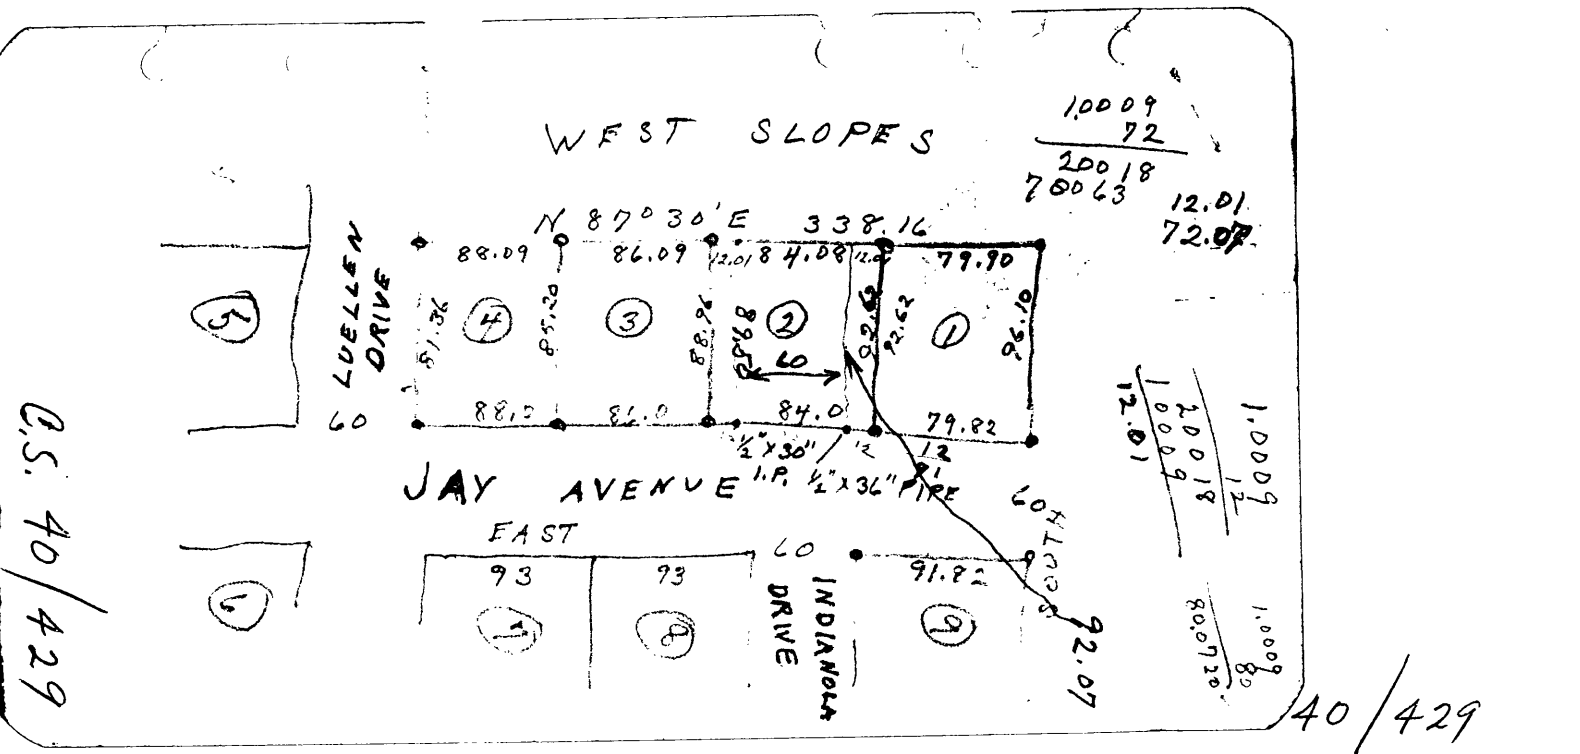 WEST SLOPES
1.0009
72
20018
70063
12.01
72.07
N 87° 30' E 338.16
88.09
86.09
12.01
84.08
79.90
LUELLEN
DRIVE
5
81.36
4
85.20
3
88.96
2
92.62
92.62
1
96.10
60
60
88.0
86.0
84.0
79.82
½" X 30"
I.P.
12
12
½" X 36"
PIPE
JAY AVENUE
60
EAST
SOUTH
93
93
60
91.82
6
7
8
INDIANOLA
DRIVE
9
92.07
1.0009
12
20018
10009
12.01
1.0009
80
80.0720
C.S. 40/429
40/429